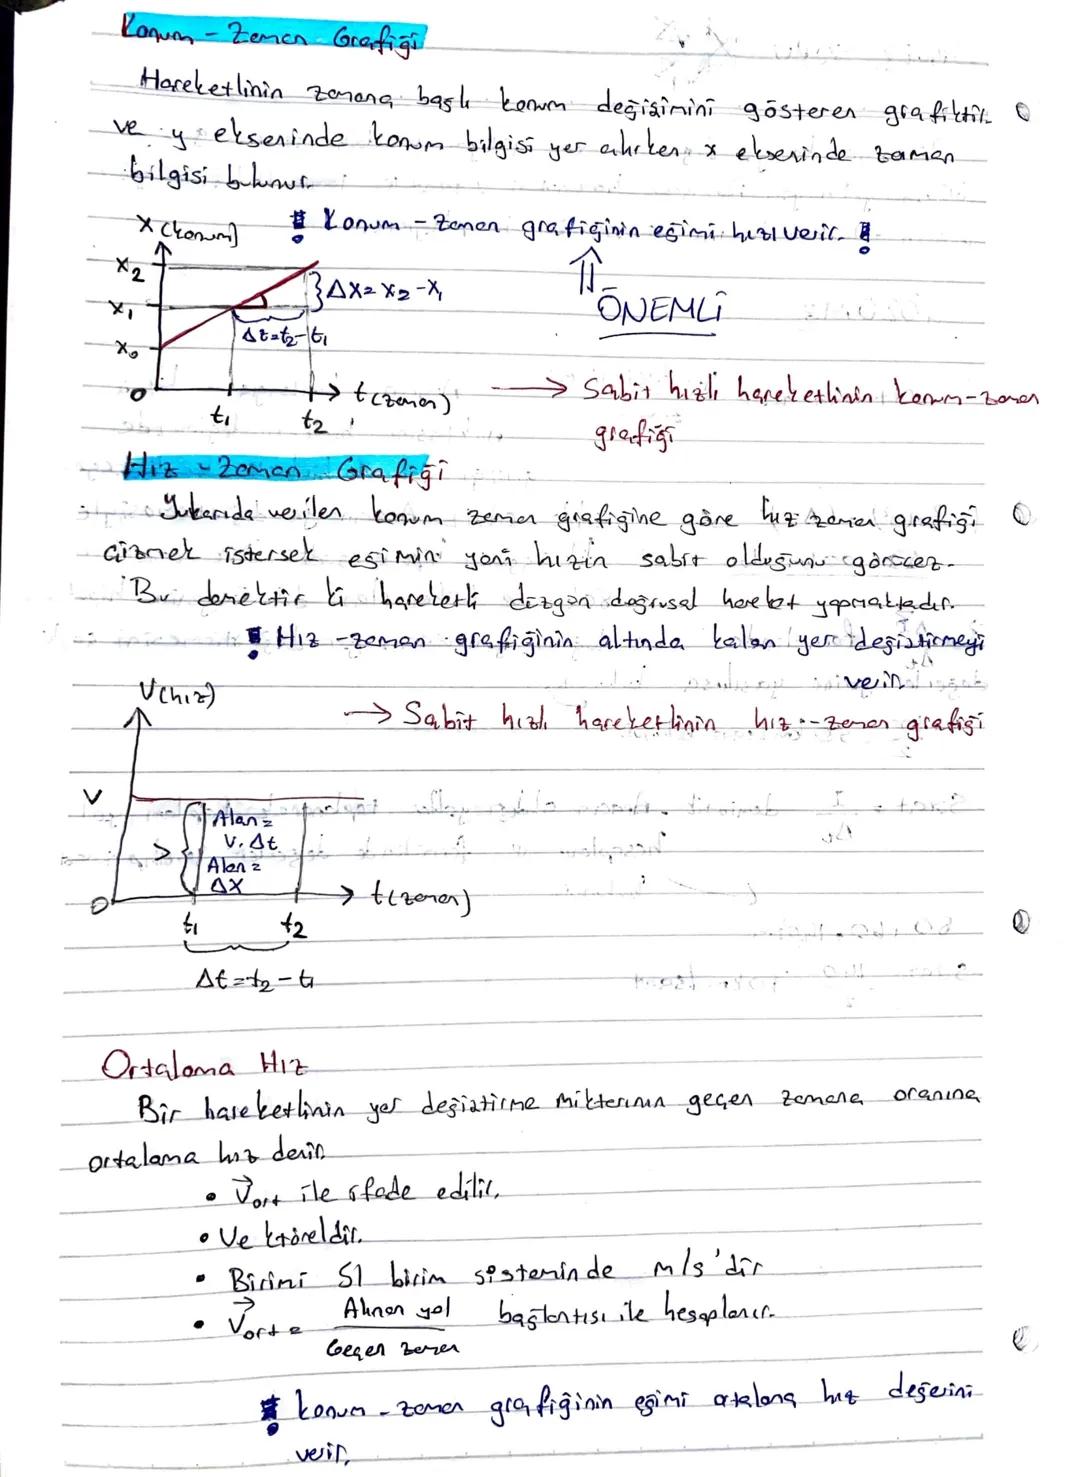 Konum - Zaman Grafiği
Hareketlinin zamana bağlı konum değişimini gösteren grafiktir
ve y ekseninde konum bilgisi yer alırken x ekseninde zaman
bilgisi bulunur.
! Konum - Zaman grafiğinin eğimi hızı verir. !
ÖNEMLİ
X (konum)
X2
X1
X0
0
ΔX = X2 - X1
Δt = t2 - t1
t1
t2
t (zaman)
→ Sabit hızlı hareketlinin konum-zaman
grafiği
Hız - Zaman Grafiği
Yukarıda verilen konum zaman grafiğine göre hız zaman grafiği
çizmek istersek eğimin yani hızın sabit olduğunu görücez.
Bu demektir ki hareketli düzgün doğrusal hareket yapmaktadır.
! Hız - zaman grafiğinin altında kalan yer değiştirmeyi
verir.
→ Sabit hızlı hareketlinin hız - zaman grafiği
V (hız)
V
V
Alan =
V. Δt
Alan =
ΔX
0
t1
t2
t (zaman)
Δt = t2 - t1
Ortalama Hız
Bir hareketlinin yer değiştirme miktarının geçen zamana oranına
ortalama hız denir.
• Vort ile ifade edilir.
• Vektöreldir.
• Birimi SI birim sisteminde m/s'dir
• Vort = Alınan yol / Geçen zaman bağlantısı ile hesaplanır.
! konum - zaman grafiğinin eğimi ortalama hız değerini
verir.